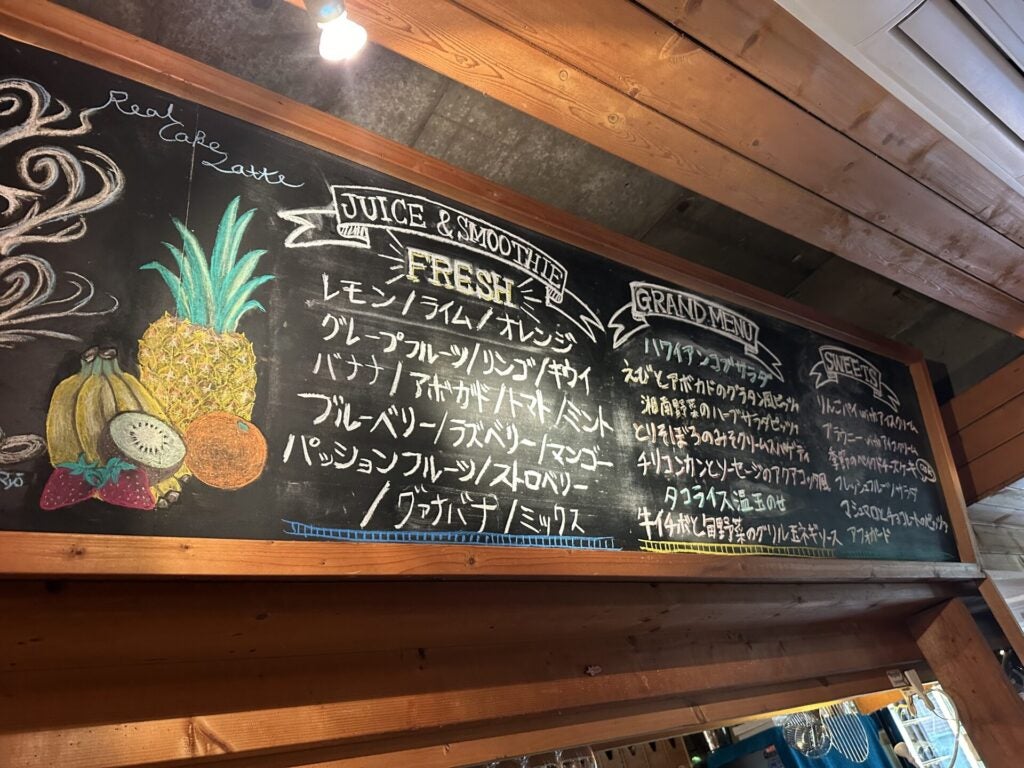 Real
Cafe
Latte
JUICE & SMOOTHIE
FRESH
レモン/ライム/オレンジ
グレープフルーツ/リンゴ/キウイ
バナナ/アボガド/トマト/ミント
ブルーベリー/ラズベリー/マンゴー
パッションフルーツ/ストロベリー
/グァナバナ/ミックス
GRAND MENU
ハワイアンコブサラダ
えびとアボカドのグラタン風ピッツァ
湘南野菜のハーブサラダピッツァ
とりそぼろのみそクリームスパゲティ
チリコンカンとソーセージのアクアコッタ風
タコライス温玉のせ
牛イチボと旬野菜のグリル玉ネギソース
SWEETS
りんごパイwithアイスクリーム
ブラウニーwithアイスクリーム
季節のベイクドチーズケーキ
フレッシュフルーツサラダ
マシュマロとチョコレートのピッツァ
アフォガード